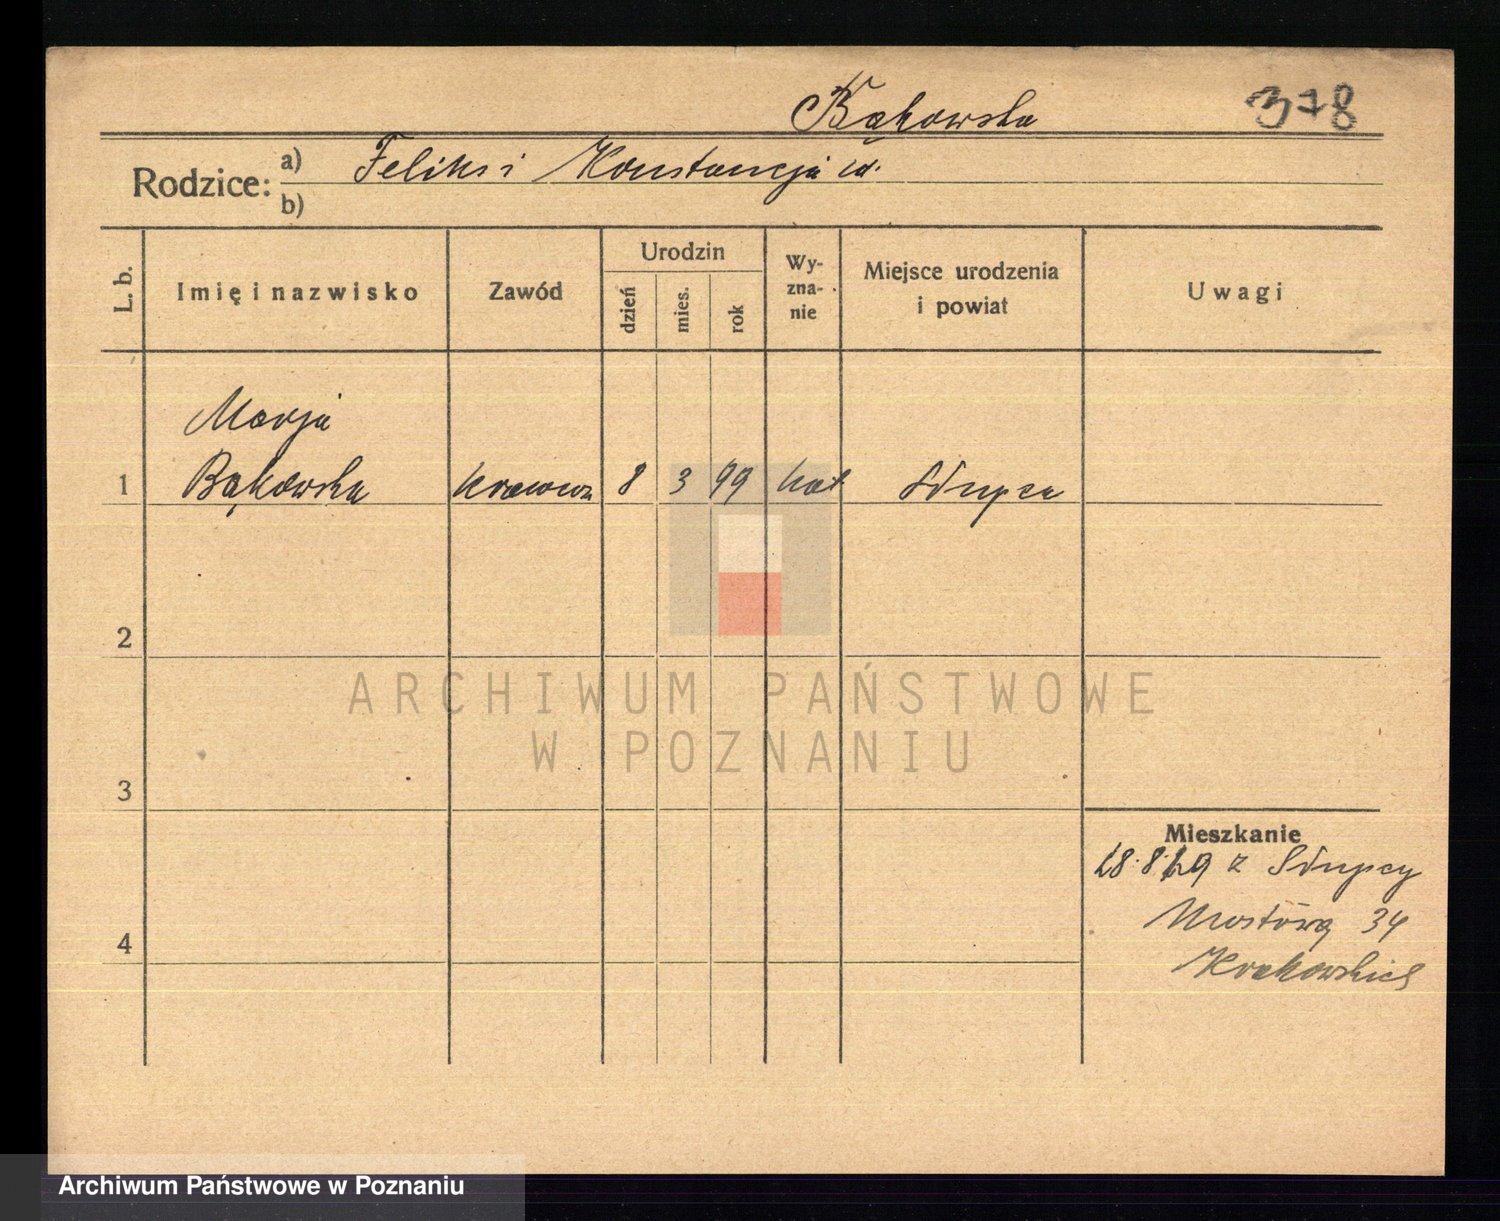 Bąkowska 378
Rodzice: a) Feliks i Konstancja
b)
L. b. Imię i nazwisko Zawód Urodzin dzień mies. rok Wyznanie Miejsce urodzenia i powiat Uwagi
Marja
1 Bąkowska krawcowa 8 3 99 kat Słupca
2
ARCHIWUM PAŃSTWOWE
W POZNANIU
3
Mieszkanie
28.8.29 z Słupcy
Mostowa 34
4
Archiwum Państwowe w Poznaniu